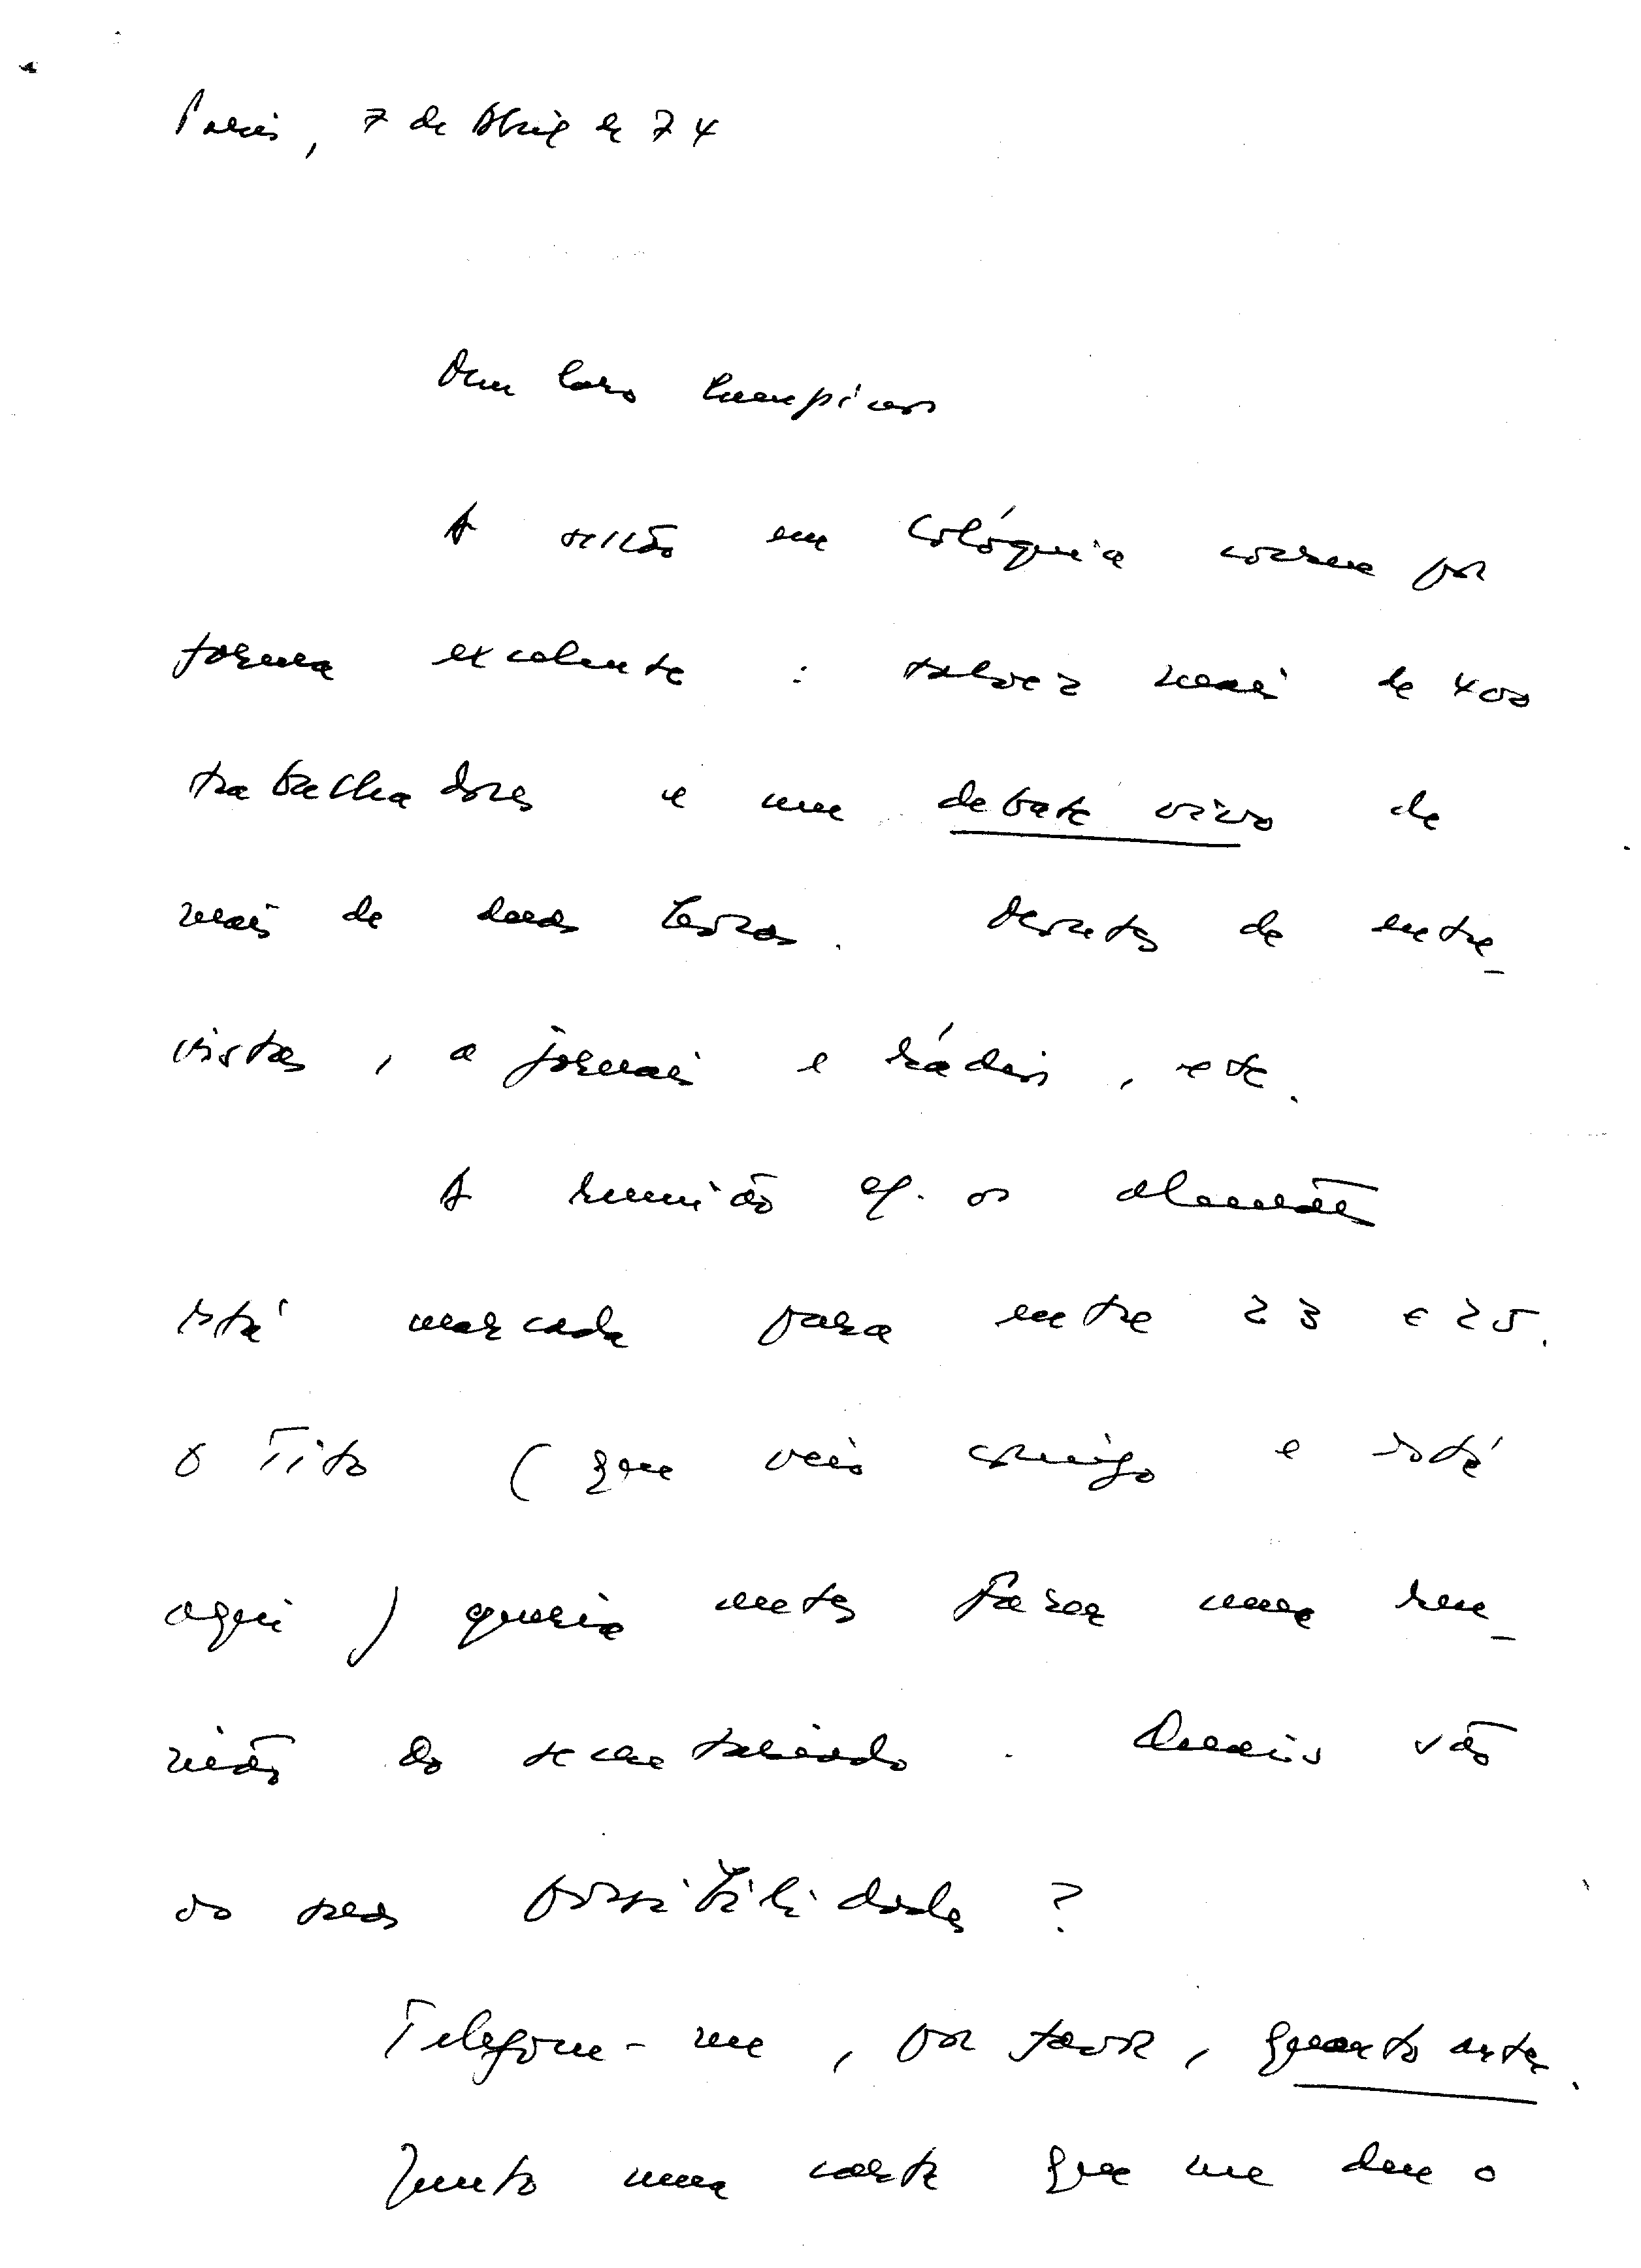 Paris, 7 de Abril de 74
Meu Caro Campinos
A sessão em Colóquia correu por
forma excelente : talvez mais de 400
trabalhadores e um debate vivo de
mais de duas horas. Montes de entre_
vistas, a jornais e rádios, etc.
A reunião c/. os alemães
está marcada para entre 23 e 25.
O Tito ( que veio comigo e está
aqui ) queria antes fazer uma reu_
nião do secretariado. Quais são
as suas possibilidades ?
Telefone-me, por favor, quanto antes.
Junto uma carta que me deu o